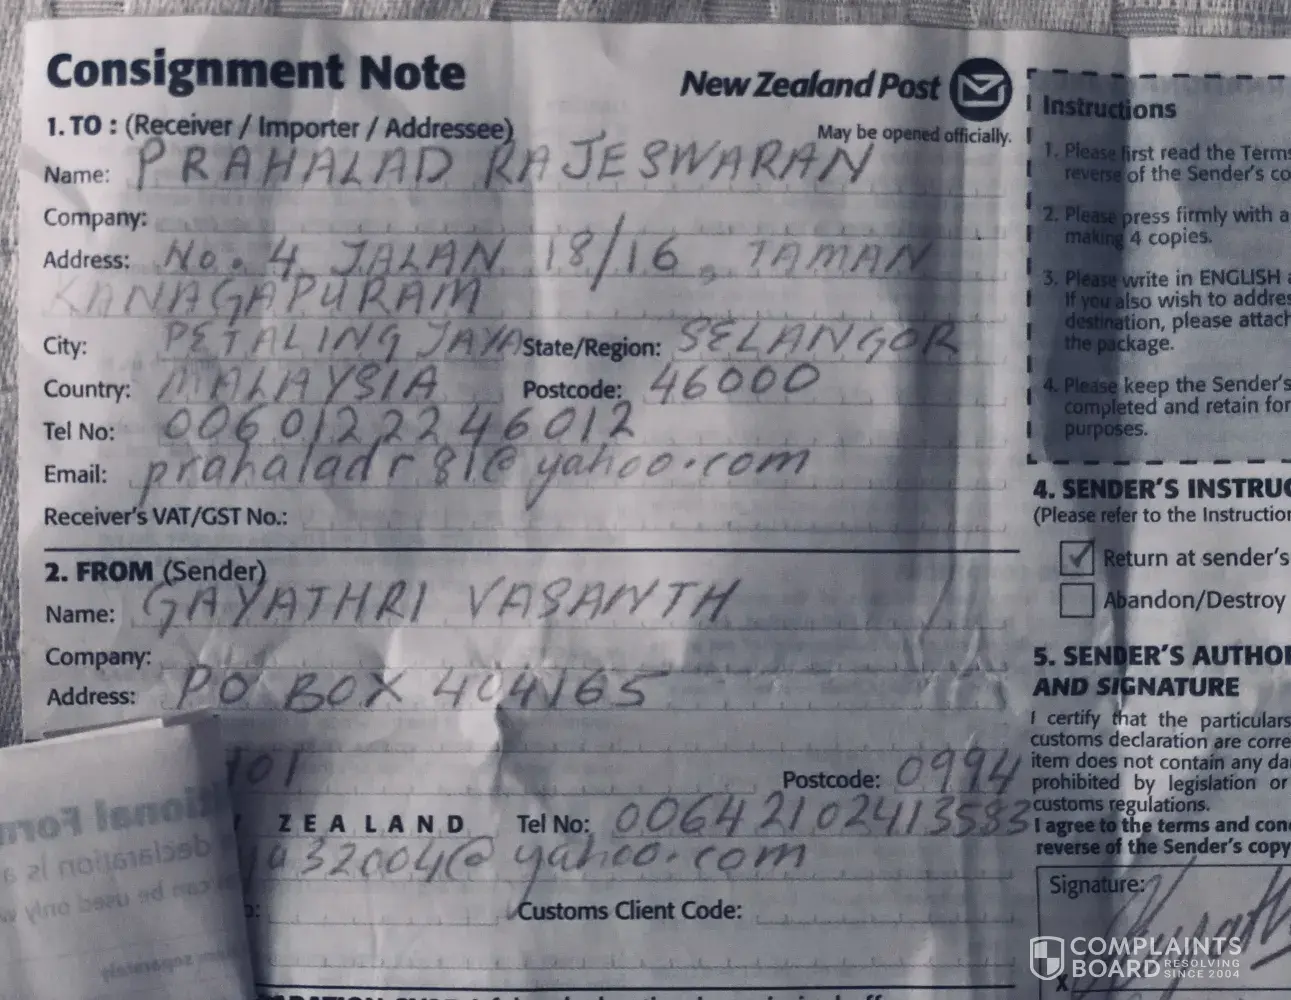 Consignment Note
New Zealand Post
May be opened officially.
1. TO : (Receiver / Importer / Addressee)
Name: PRAHALAD RAJESWARAN
Company:
Address: No. 4 JALAN 18/16, TAMAN
KANAGAPURAM
City: PETALING JAYA State/Region: SELANGOR
Country: MALAYSIA Postcode: 46000
Tel No: 0060122246012
Email: prahaladr81@yahoo.com
Receiver's VAT/GST No.:
2. FROM (Sender)
Name: GAYATHRI VASANTH
Company:
Address: PO BOX 404165
Postcode: 0994
ZEALAND Tel No: 00642102413583
32004@yahoo.com
Customs Client Code:
Instructions
1. Please first read the Terms
reverse of the Sender's co
2. Please press firmly with a
making 4 copies.
3. Please write in ENGLISH
If you also wish to addre
destination, please attach
the package.
4. Please keep the Sender's
completed and retain for
purposes.
4. SENDER'S INSTRUC
(Please refer to the Instruction
Return at sender's
Abandon/Destroy
5. SENDER'S AUTHO
AND SIGNATURE
I certify that the particulars
customs declaration are corre
item does not contain any da
prohibited by legislation or
customs regulations.
I agree to the terms and con
reverse of the Sender's copy
Signature:
X
COMPLAINTS
BOARD RESOLVING
SINCE 2004